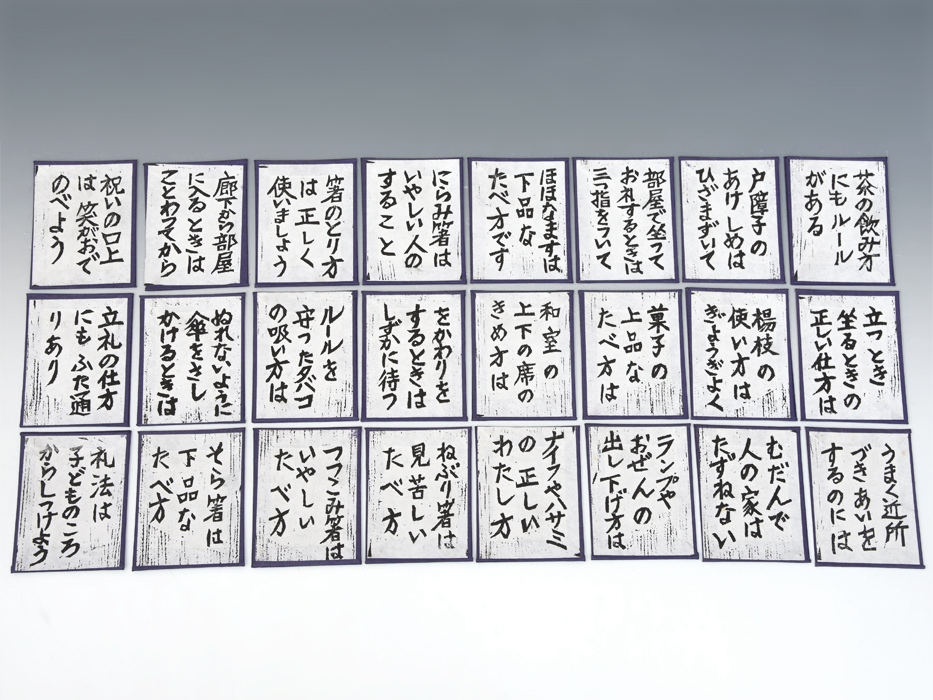 茶の飲み方
にもルール
がある
戸障子の
あけしめは
ひざまずいて
部屋で坐って
お礼するときは
三つ指をついて
ほほなますは
下品な
たべ方です
にらみ箸は
いやしい人の
すること
箸のとり方
は正しく
使いましょう
廊下から部屋
に入るときは
ことわってから
祝いの口上
は笑がおで
のべよう
立つとき
坐るときの
正しい仕方は
楊枝の
使い方は
ぎょうぎよく
菓子の
上品な
たべ方は
和室の
上下の席の
きめ方は
をかわりを
するときは
しずかに待つ
ルールを
守ったタバコ
の吸い方は
ぬれないように
傘をさし
かけるときは
立礼の仕方
にもふた通
りあり
うまく近所
づきあいを
するのには
むだんで
人の家は
たずねない
ランプや
おぜんの
出し下げ方は
ナイフやハサミ
の正しい
わたし方
ねぶり箸は
見苦しい
たべ方
つっこみ箸は
いやしい
たべ方
そら箸は
下品な
たべ方
礼法は
子どものころ
からしつけよう